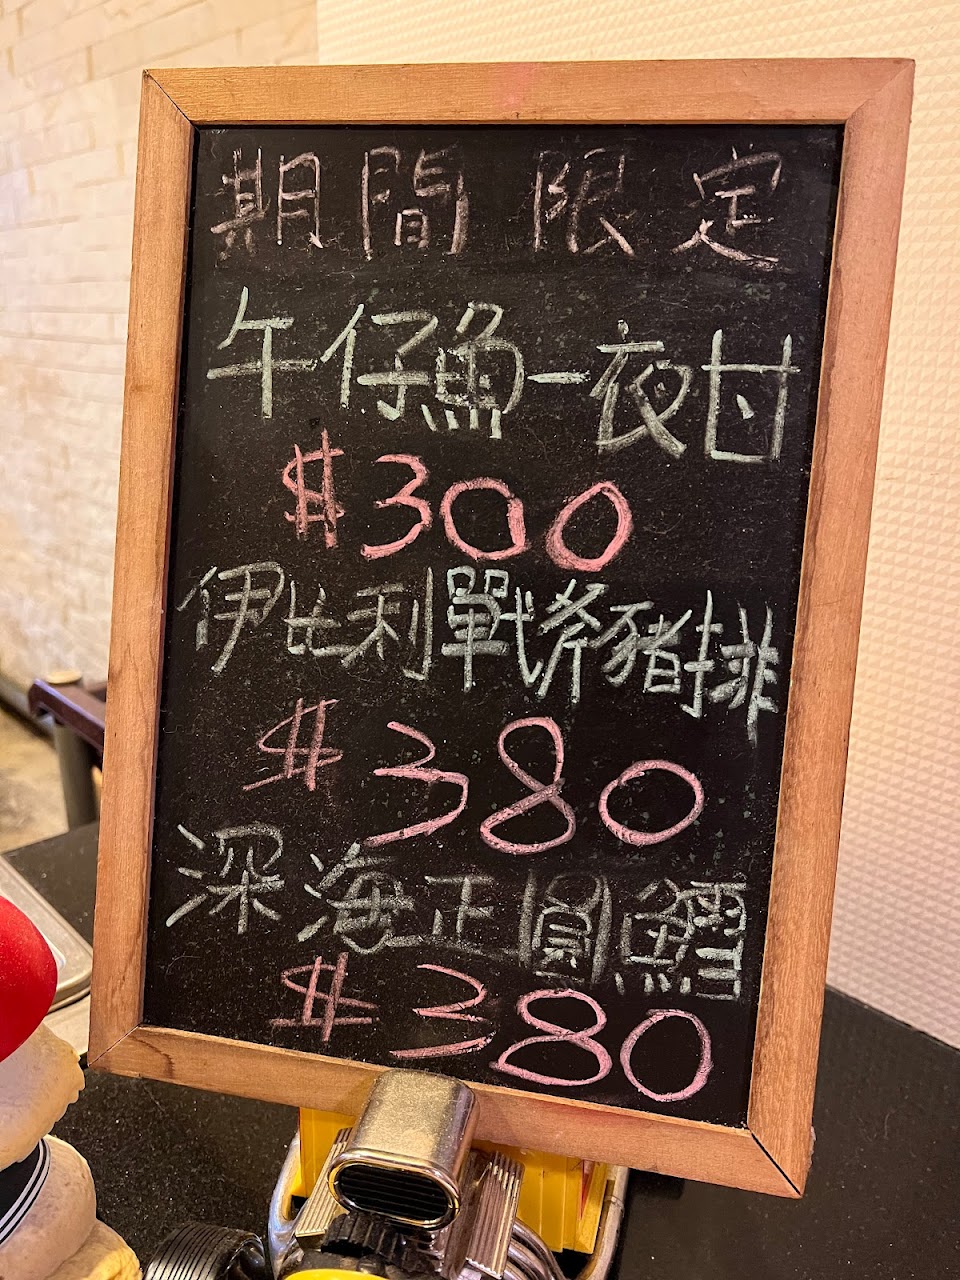 期間限定
午仔魚一夜甘
$300
伊比利戰斧豬排
$380
深海正圓鱈
$380